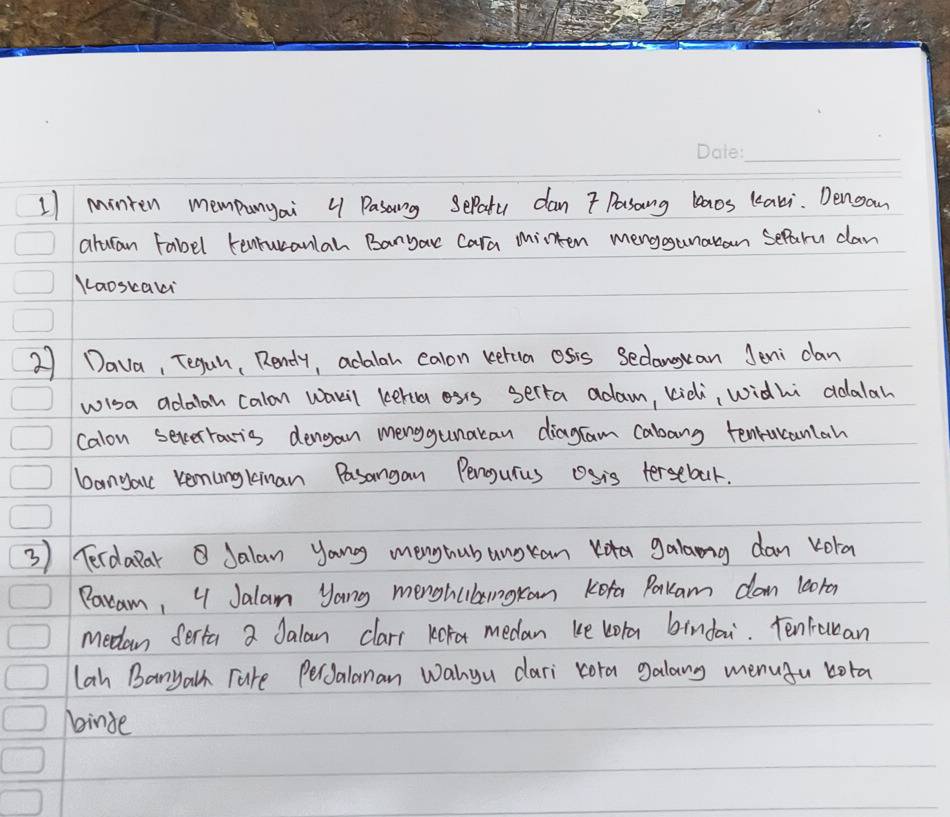 Date:
1) Minten mempunyai 4 Pasang Sepatu dan 7 Pasang kaos kaki. Dengan
aturan tabel tentukanlah Banyak cara minten menggunakan Sepatu dan
Kaoskaki
2) Dava, Teguh, Rendy, adalah calon ketua osis Sedangkan Jeni dan
wisa adalah calon wakil ketua osis serta adam, kidi, widhi adalah
calon sekertaris dengan menggunakan diagram cabang tentukanlah
banyak kemungkinan Pasangan Pengurus osis tersebut.
3) Terdapat 8 Jalan yang menghubungkan kota galang dan kota
Pakam, 4 Jalan yang menghubungkan kota Pakam dan kota
medan Serta 2 Jalan dari kota medan ke kota bindai. Tentukan
lah Banyak rute Perjalanan Wahyu dari kota galang menuju kota
binje